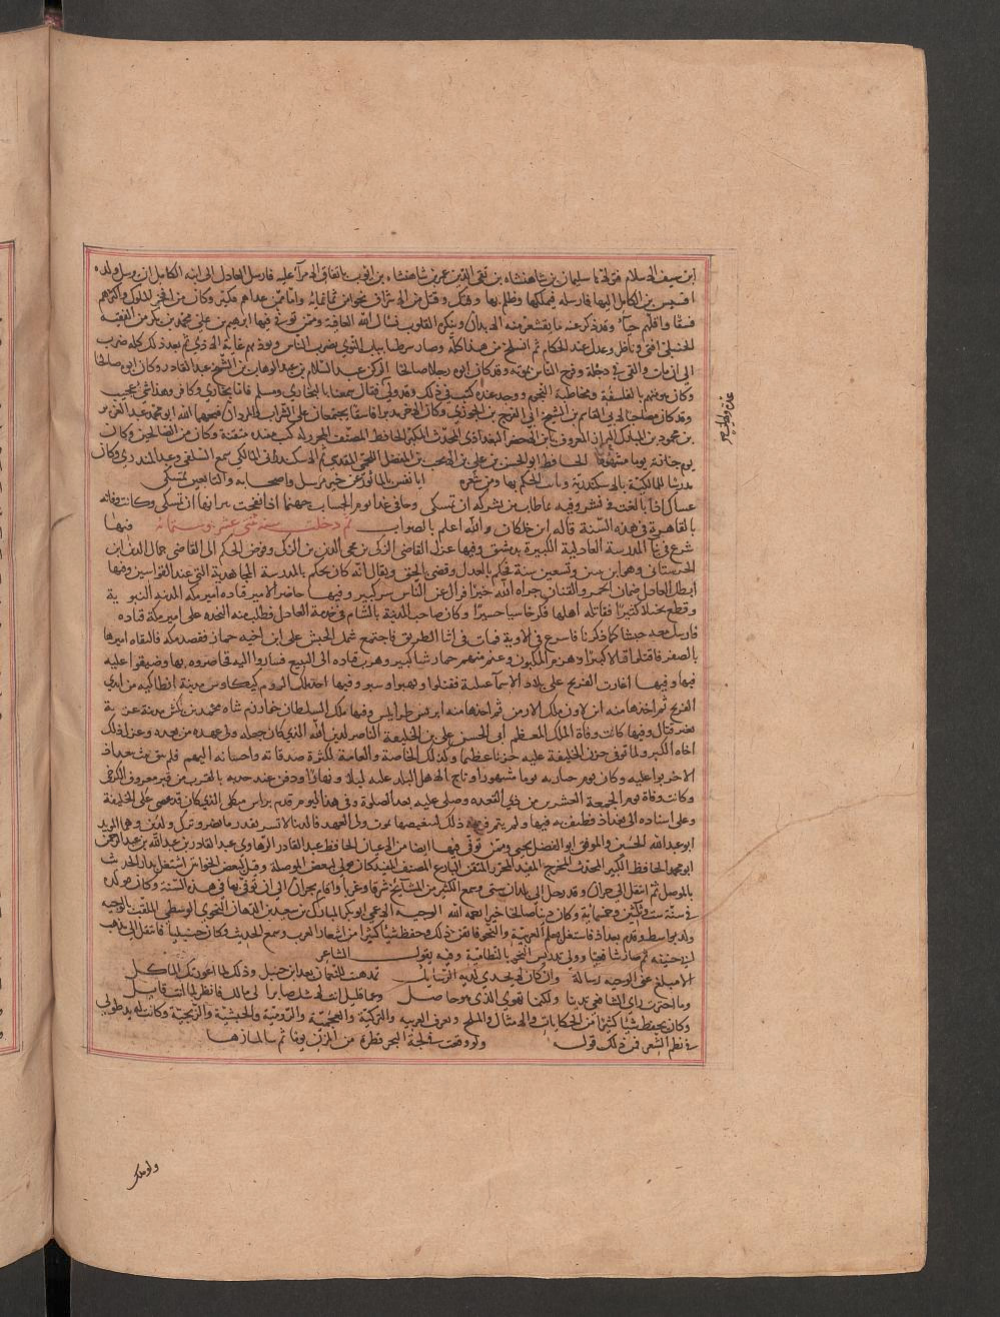 ابن سيف الاسلام فتولى سليمان بن شاهنشاه بن تقي الدين عمر بن شاهنشاه بن ايوب باتفاق الامرآ عليه فارسل العادل الى ابنه الكامل ان يرسل ولده
اقسيس بن الكامل اليها فارسله فتملكها وظلم بها وفتك وقتل من الاشراف نحوا من ثمانمائة واما من عداهم فكثير وكان من افجر الملوك واكثرهم
فسقا واقلهم حيآء وقد ذكر عنه ما تقشعر منه الابدان وتنكر القلوب نسال الله العافية وممن توفي فيها ابرهيم بن علي محمد بن بكروس الفقيه
الحنبلي افتى وناظر وعدل عند الحكام ثم انسلخ من هذا كله وصار شرطيا بباب النوبي يضرب الناس ويوذيهم غاية الاذى ثم بعد ذلك كله ضرب
الى ان مات والقي في دجلة وفرح الناس بموته وقد كان ابوه رجلا صالحا الركن عبد السلام بن عبد الوهاب بن الشيخ عبد القادر وكان ابوه صالحا
وكان يتهم بالفلسفة ومخاطبة النجوم ووجد عنده كتب في ذلك
وقد كان مصاحبا لابي القاسم بن الشيخ ابي الفرج بن الجوزي وكان الاخر مدبرا فاسقا يجتمعان على الشراب والمردان قبحهما الله ابو محمد عبد العزيز
بن محمود بن المبارك البزاز المعروف بابن الاخضر البغدادي المحدث المكثر الحافظ المصنف المحرر له كتب مفيدة متقنة وكان من الصالحين وكان
يوم جنازته يوما مشهودا الحافظ ابو الحسن بن علي بن الانجب بن المفضل اللخمي المقدسي ثم الاسكندراني المالكي سمع السلفي وعبد المنذري وكان
مدرسا للمالكية بالاسكندرية وناب الحكم بها ومن شعره ايا نفس بالماثور عن خير مرسل واصحابه والتابعين تمسكي
عساك اذا بالغت في نشر دينه بما طاب من نشر له ان تمسكي وخافي غدا يوم الحساب جهنما اذا لفحت نيرانها ان تمسكي وكانت وفاته
بالقاهرة في هذه السنة قاله ابن خلكان والله اعلم بالصواب ثم دخلت سنة ثنتي عشر وستمائة فيها
شرع في بنآ المدرسة العادلية الكبيرة بدمشق وفيها عزل القاضي الزكي بن محي الدين بن الزكي وفوض الحكم الى القاضي جمال الدين ابن
الحرستاني وهو ابن ثنتين وتسعين سنة فحكم بالعدل وقضى بالحق ويقال انه كان يحكم بالمدرسة المجاهدية التي عند القواسين وفيها
ابطل العادل ضمان الخمر والقينان جزاه الله خيرا فزال عن الناس شر كبير وفيها حاصر الامير قتاده امير مكة المدينة النبوية
وقطع نخلا كثيرا فقاتله اهلها فكر خاسيا حسيرا وكان صاحب المدينة بالشام في خدمة العادل فطلب منه النجدة على امير مكة قتاده
فارسل معه جيشا فاسرع في الاوبة فمات في اثنا الطريق فاجتمع شمل الجيش على ابن اخيه جماز فقصد مكة فالتقاه اميرها
بالصفر فاقتتلوا قتالا كبيرا وهزم المكيون وغنم منهم جماز شيا كبير وهرب قتاده الى الينبع فساروا اليه فحاصروه بها وضيقوا عليه
فيها وفيها اغارت الفرنج على بلاد الاسماعيلية فقتلوا ونهبوا وسبوا وفيها اخذ ملك الروم كيكاوس مدينة انطاكية من ايدي
الفرنج ثم اخذها منه ابن لاون ملك الارمن ثم اخذها منه ابريس طرابلس وفيها ملك السلطان خوارزم شاه محمد بن تكش مدينة غزنة
بغير قتال وفيها كانت وفاة الملك المعظم ابي الحسن علي بن الخليفة الناصر لدين الله الذي كان جعله ولي عهده من بعده وعزل لذلك
اخاه الكبير ولما توفي حزن الخليفة عليه حزنا عظيما وكذلك الخاصة والعامة لكثرة صدقاته واحسانه اليهم فلم يبق بيت ببغداد
الا حزنوا عليه وكان يوم جنازته يوما مشهودا وناح اهل البلد عليه ليلا ونهارا ودفن عند جدته بالقرب من قبر معروف الكرخي
وكانت وفاة يوم الجمعة العشرين من ذي القعدة وصلي عليه بعد الصلوة وفي هذا اليوم قدم براس منكلي الذي كان قد عصى على الخليفة
وعلى استاده الى بغداد فطيف به فيها ولم يتم فرحه ذلك لتنغيصها بموت ولي العهد فالدنيا لا تسر بقدر ما تضر وترك ولدين وهما المويد
ابو عبد الله الحسين والموفق ابو الفضل يحيى وممن توفي فيها ايضا من الاعيان الحافظ عبد القادر الرهاوي عبد القادر بن عبد الله بن عبد الرحمن
ابو محمد الحافظ الكبير المحدث المخرج المفيد المحرر المتقن البارع المصنف المفيد كان مولى لبعض المواصلة وقيل لبعض اشتغل بدار الحديث
بالموصل ثم انتقل الى حران وقد رحل الى بلدان شتى وسمع الكثير من المشايخ شرقا وغربا واقام بحران الى ان توفي بها في هذه السنة وكان مولده
في سنة ست وثلثين وخمسمائة وكان دينا صالحا خيرا رحمه الله الوجيه الاعمى ابو بكر المبارك بن سعيد بن الدهان النحوي الوسطي الملقب بالوجيه
ولد بواسط وقدم بغداد فاشتغل بعلم العربية والنحو فاتقن ذلك وحفظ شيا كثيرا من اشعار العرب وسمع الحديث وكان حنبليا فانتقل الى مذهب
ابي حنيفه ثم صار شافعيا وولى تدريس النحو بالنظامية وفيه يقول الشاعر
الا مبلغ عني الوجيه رسالة وان كان لا تجدي لديه الرسايل تمذهبت للنعمان بعد ابن حنبل وذلك لما اعوزتك الماكل
وما اخترت راي الشافعي تدينا ولكنما تهوى الذي هو حاصل وعما قليل انت لا شك صايرا الى مالك فانظر لما انت قايل
وكان يحفظ شيا كثيرا من الحكايات والامثال والملح ويعرف العربيه والتركية والعجمية والرومية والحبشية والزنجية وكانت له يد طولى
في نظم الشعر فمن ذلك قوله ولو وقعت في لجة البحر قطرة من المزن يوما ثم شا لمازها
ولو ملك